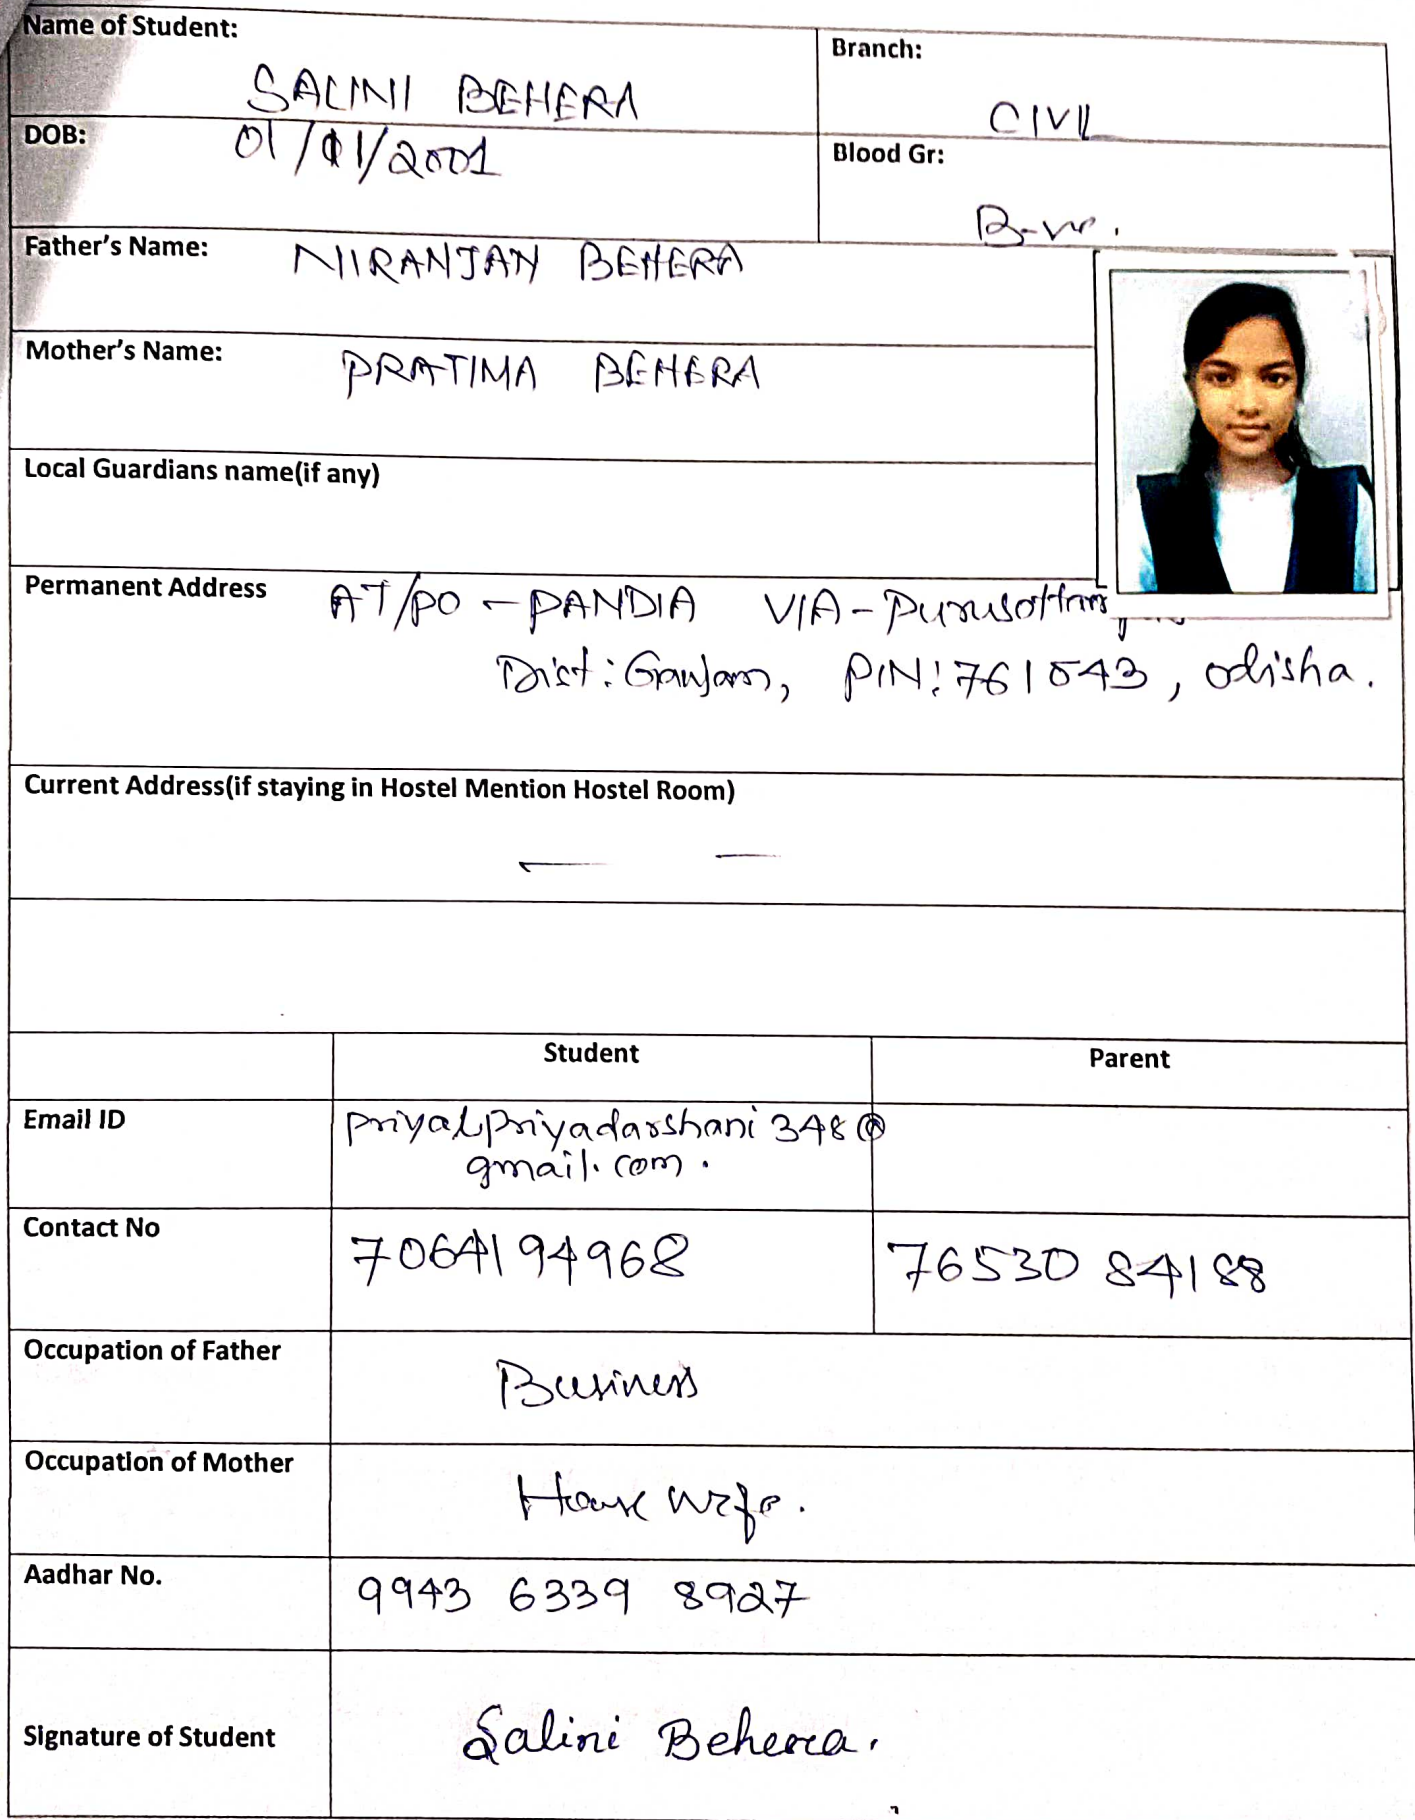 Name of Student:
SALINI BEHERA
Branch:
CIVIL
DOB:
01/01/2001
Blood Gr:
B-ve.
Father's Name:
NIRANJAN BEHERA
Mother's Name:
PRATIMA BEHERA
Local Guardians name(if any)
Permanent Address
AT/PO - PANDIA VIA-
Dist: Ganjam, PIN: 761043, odisha.
Current Address(if staying in Hostel Mention Hostel Room)
Student
Parent
Email ID
priyalpriyadarshani348@
gmail.com.
Contact No
7064194968
76530 84188
Occupation of Father
Business
Occupation of Mother
House wife.
Aadhar No.
9943 6339 8927
Signature of Student
Salini Behera.